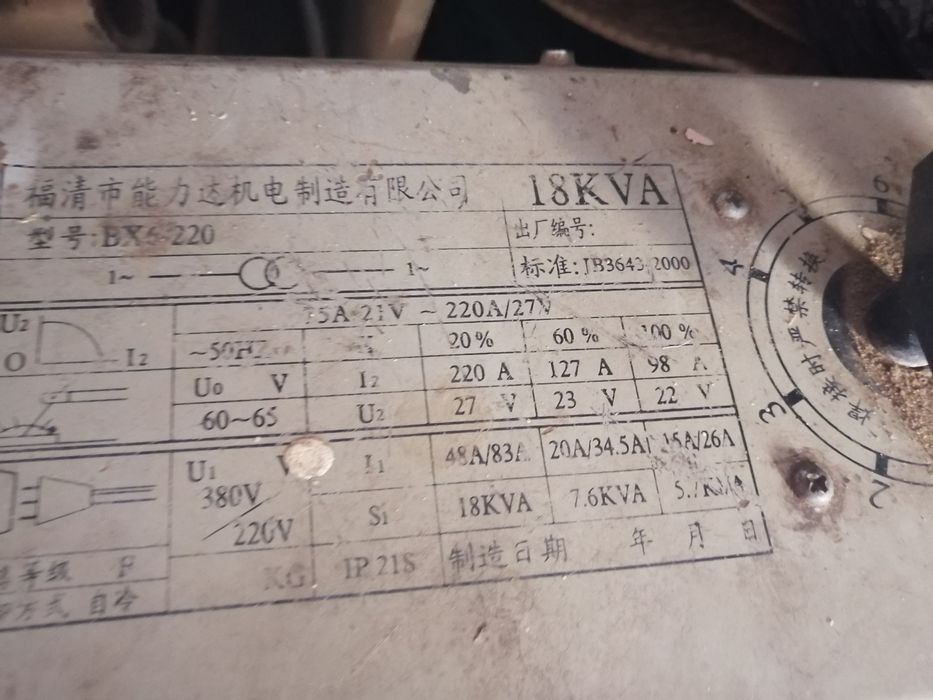 福清市能力达机电制造有限公司 18KVA
型号:BX6-220 出厂编号:
1~ 1~ 标准:JB3643-2000
5A 21V ~ 220A/27V
U2 O I2
~50HZ 20% 60% 100%
U0 V I2 220 A 127 A 98 A
60~65 U2 27 V 23 V 22 V
U1 V I1 48A/83A 20A/34.5A 15A/26A
380V/220V S1 18KVA 7.6KVA 5.7KVA
等级 F KG IP21S 制造日期 年 月 日
方式 自冷
焊接时严禁转换
2
3
4